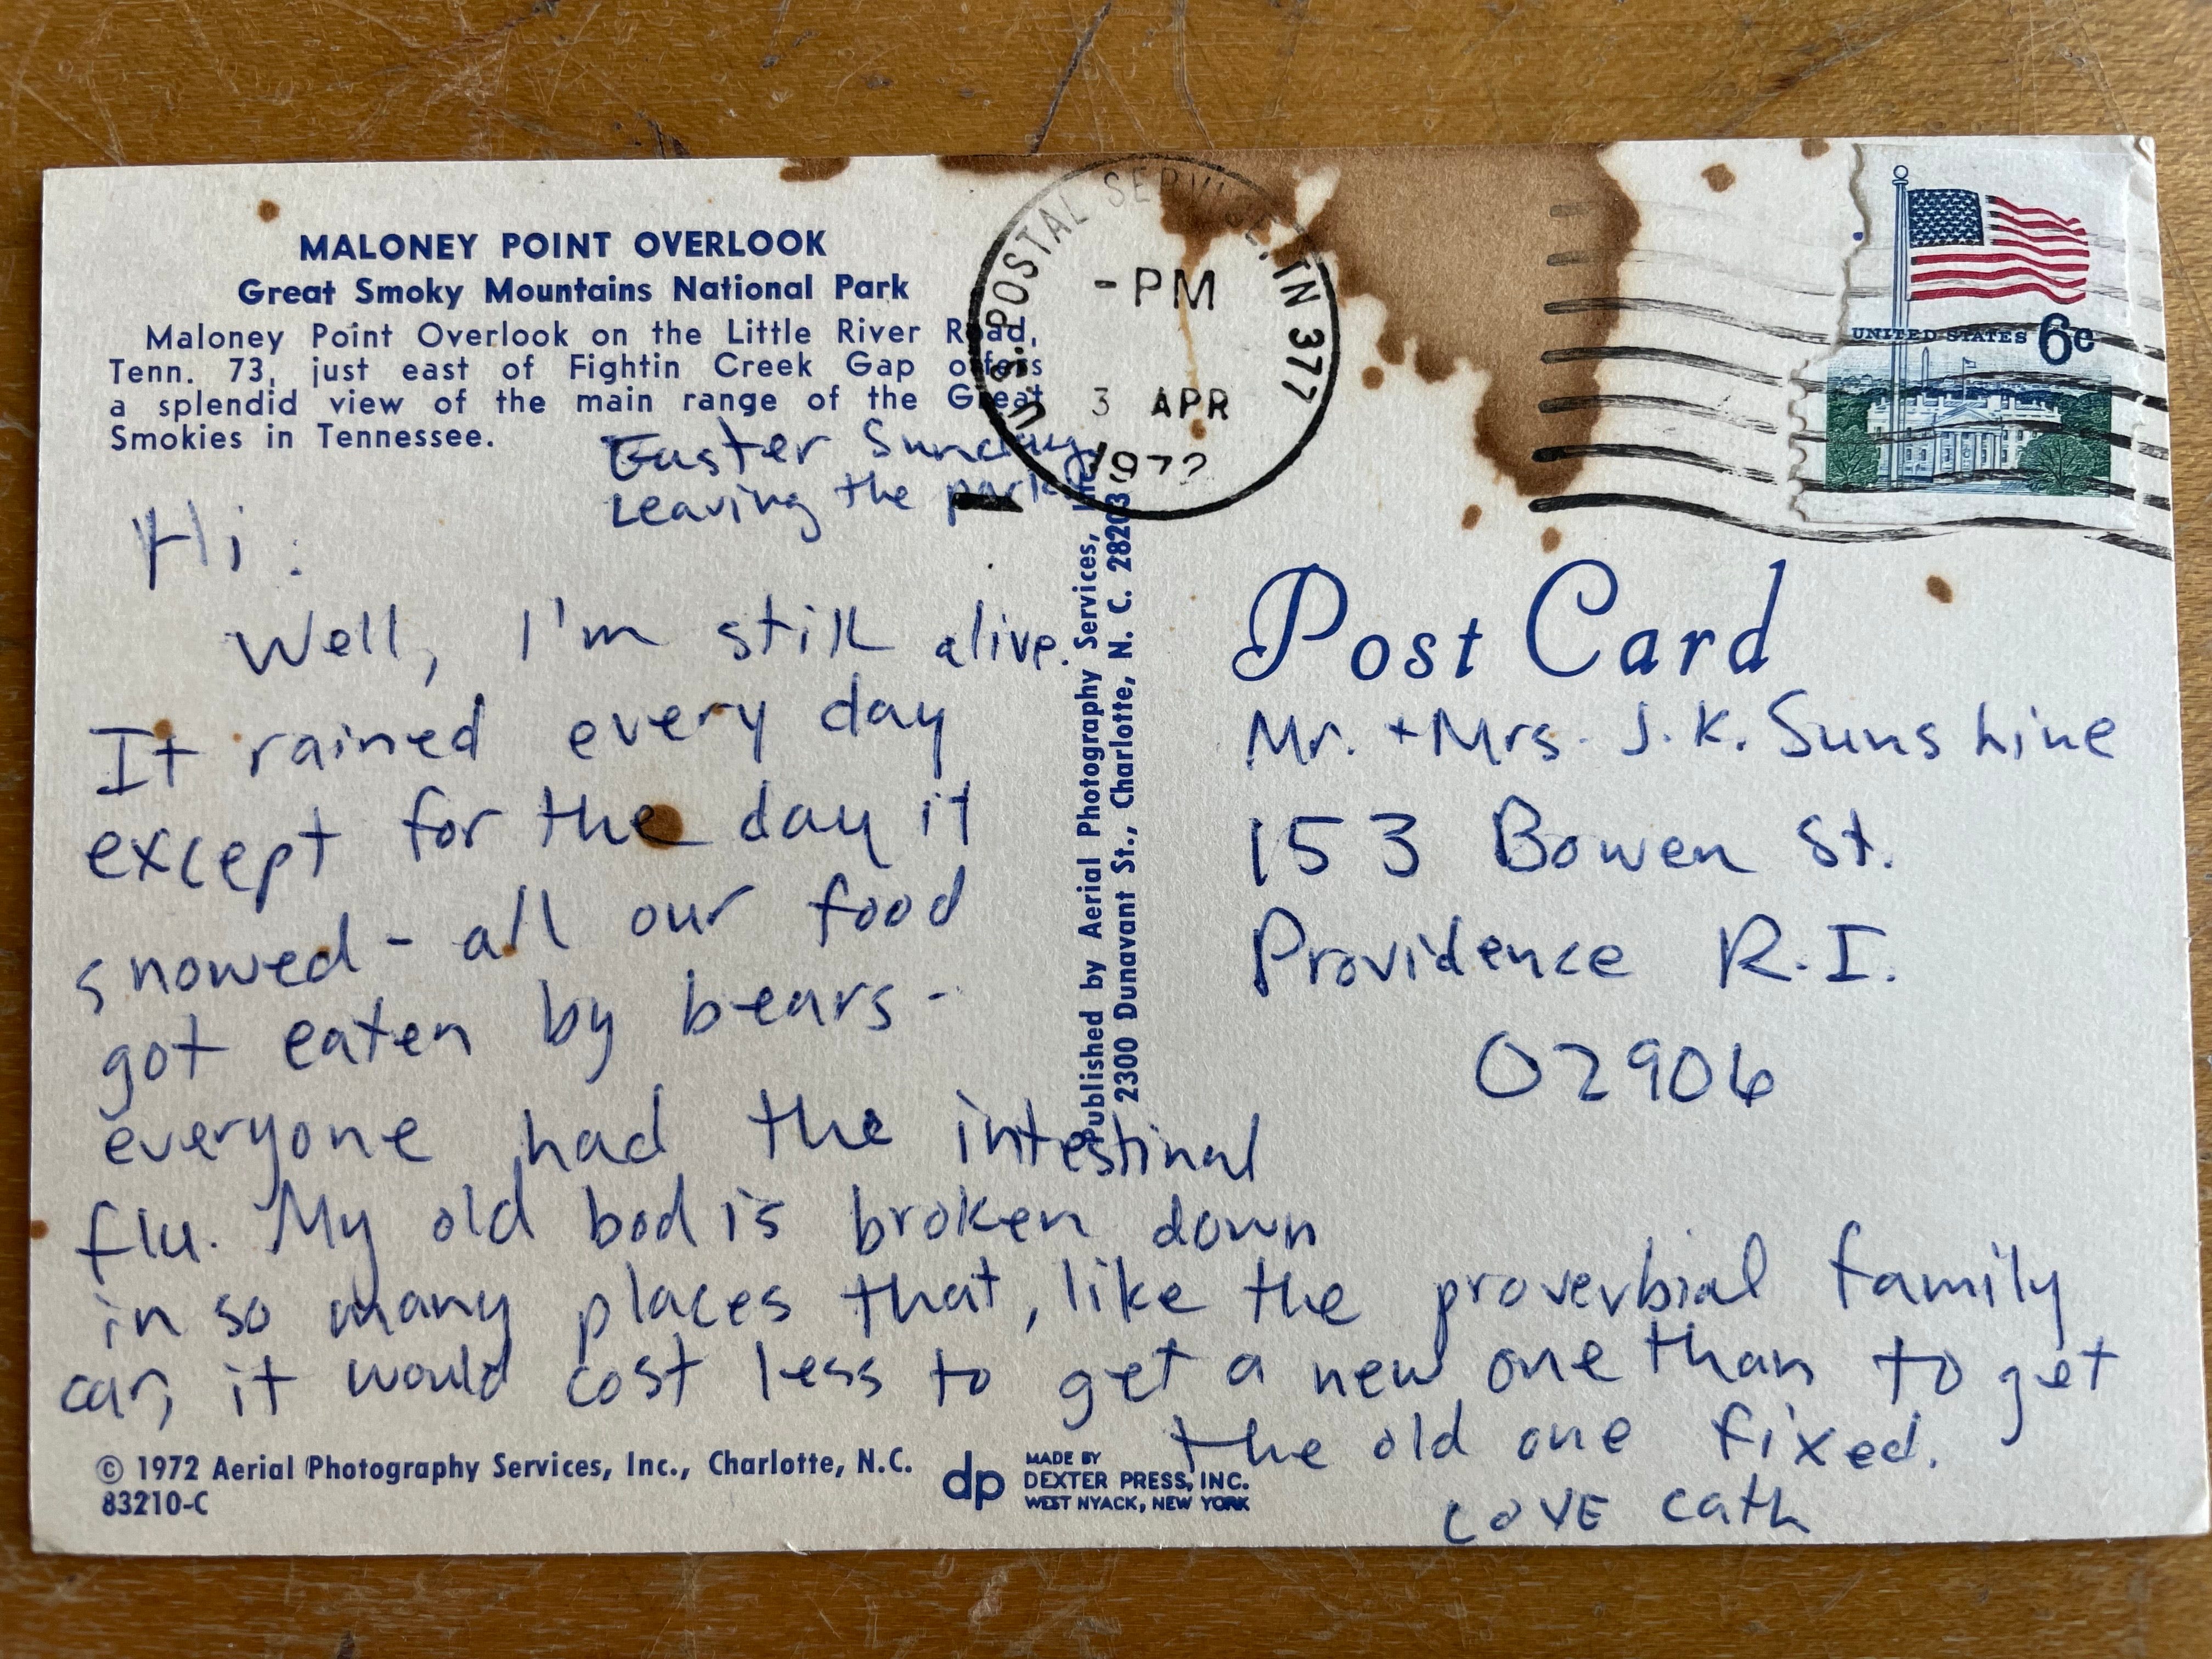 MALONEY POINT OVERLOOK
Great Smoky Mountains National Park
Maloney Point Overlook on the Little River Road,
Tenn. 73, just east of Fightin Creek Gap offers
a splendid view of the main range of the Great
Smokies in Tennessee.
Easter Sunday,
Leaving the park
Hi:
Well, I'm still alive.
It rained every day
except for the day it
snowed - all our food
got eaten by bears -
everyone had the intestinal
flu. My old bod is broken down
in so many places that, like the proverbial family
car, it would cost less to get a new one than to get
the old one fixed.
LOVE Cath
© 1972 Aerial Photography Services, Inc., Charlotte, N.C.
83210-C
dp
MADE BY
DEXTER PRESS, INC.
WEST NYACK, NEW YORK
Published by Aerial Photography Services, Inc.
2300 Dunavant St., Charlotte, N. C. 28203
U.S. POSTAL SERVICE, TN 377
-PM
3 APR
1972
UNITED STATES 6c
Post Card
Mr. + Mrs. J. K. Sunshine
153 Bowen St.
Providence R.I.
02906